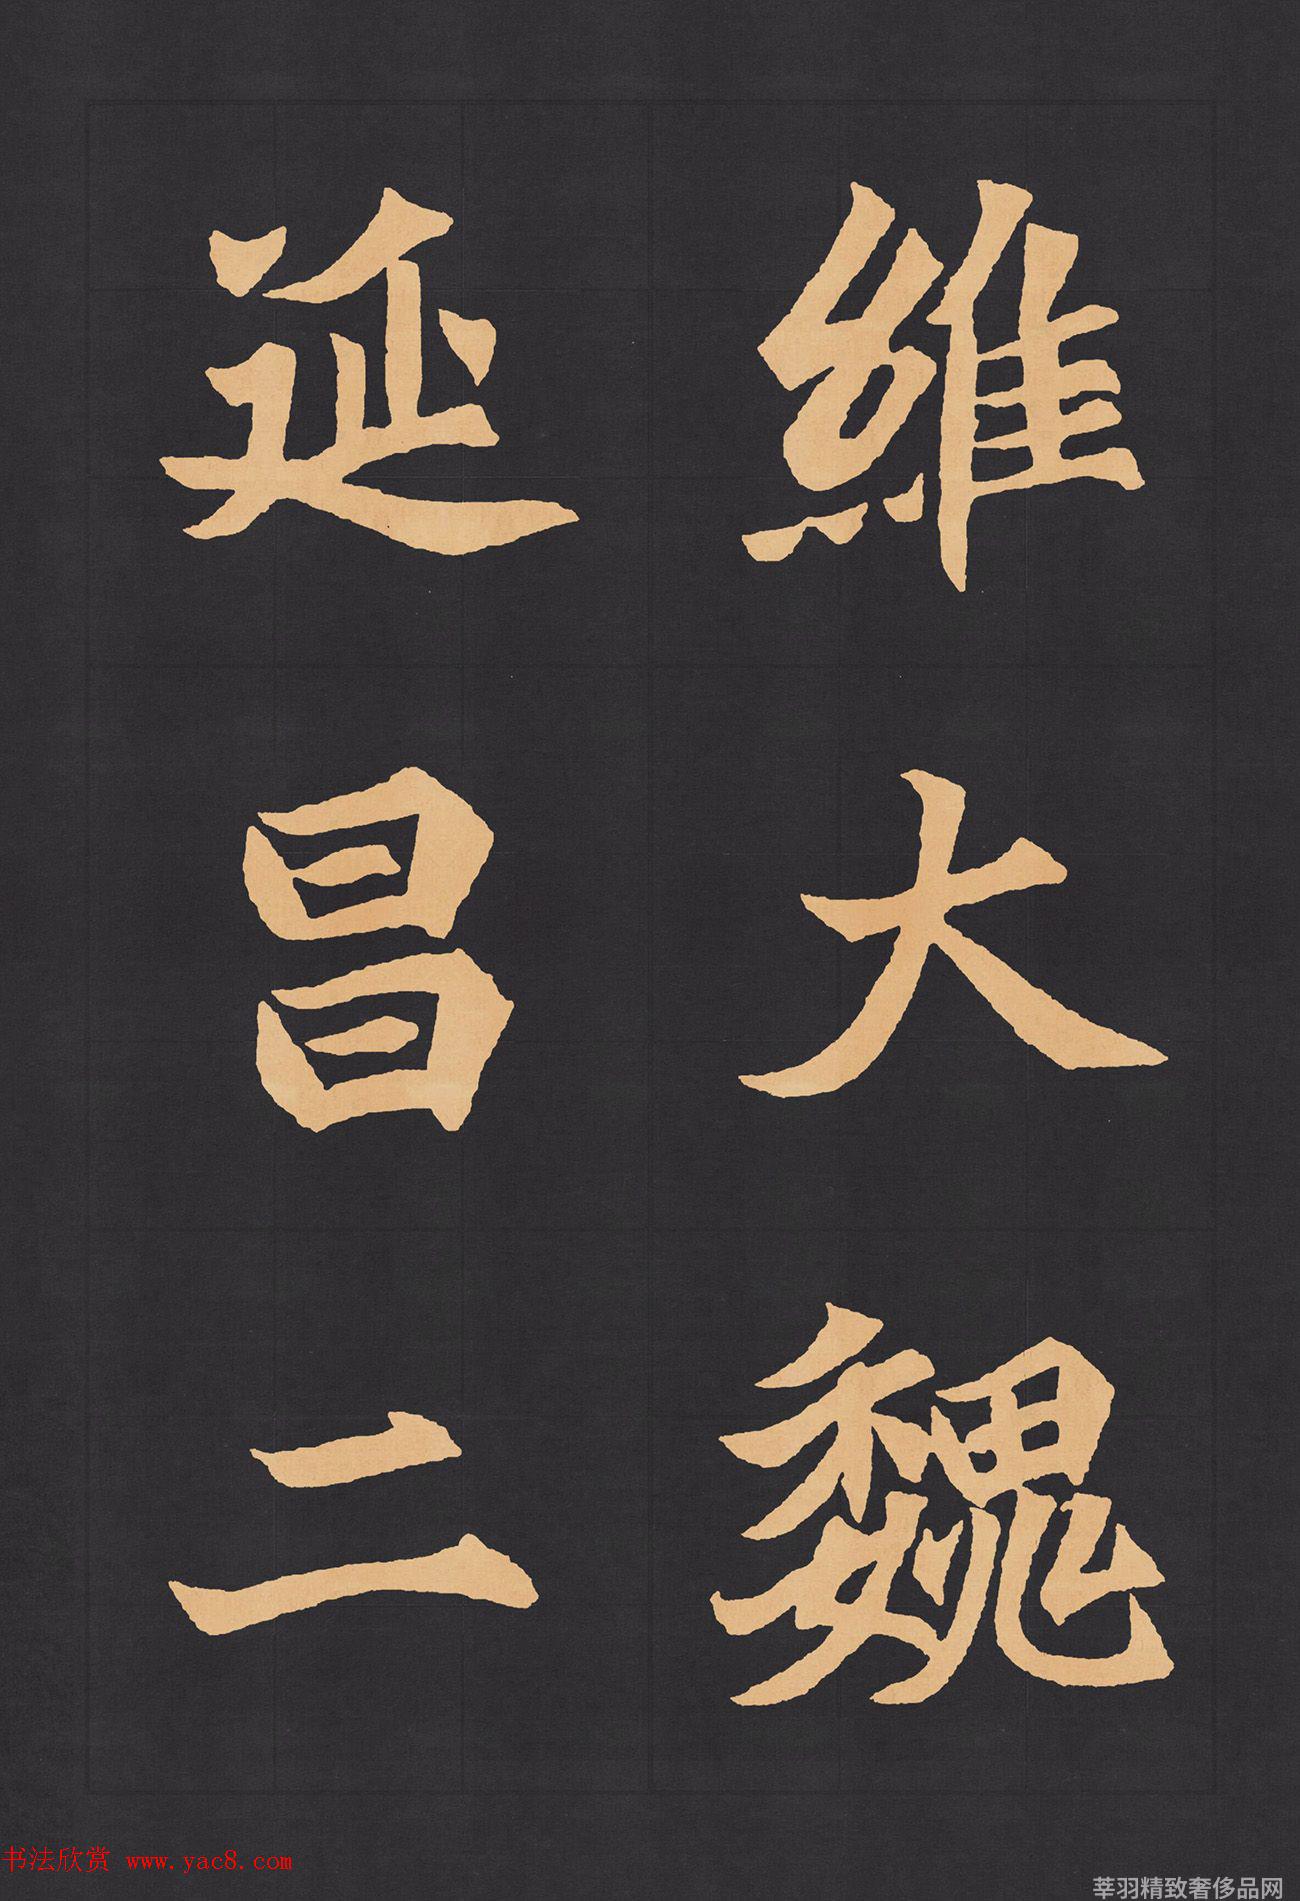 維大魏
延昌二
书法欣赏 www.yac8.com
莘羽精致奢侈品网